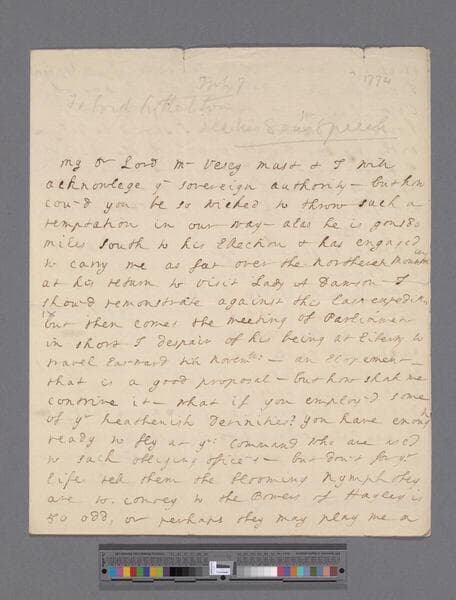 ? 1774
To Lord Lyttelton
Speech
My Dr Lord Mr Vesey must & I will
acknowlege yr sovereign authority – but how
cou'd you be so wicked to throw such a
temptation in our way – alas he is gone 80
miles South to his Election & has engaged
to carry me as far over the Northeren Mountns
at his return to visit Lady A Dawson – I
shou'd remonstrate against this last expedin
but then comes the meeting of Parliament
in short I despair of his being at liberty to
travel Earward till Novembr – an Elopement –
that is a good proposal – but how shall we
contrive it – what if you employ'd some
of yr heathenish Devinities? you have enough
ready to fly at yr command who are us'd
to such obliging offices – but don't for yr
life tell them the blooming Nymph they
are to convey to the Bowers of Hagley is
50 odd, or perhaps they may play me a